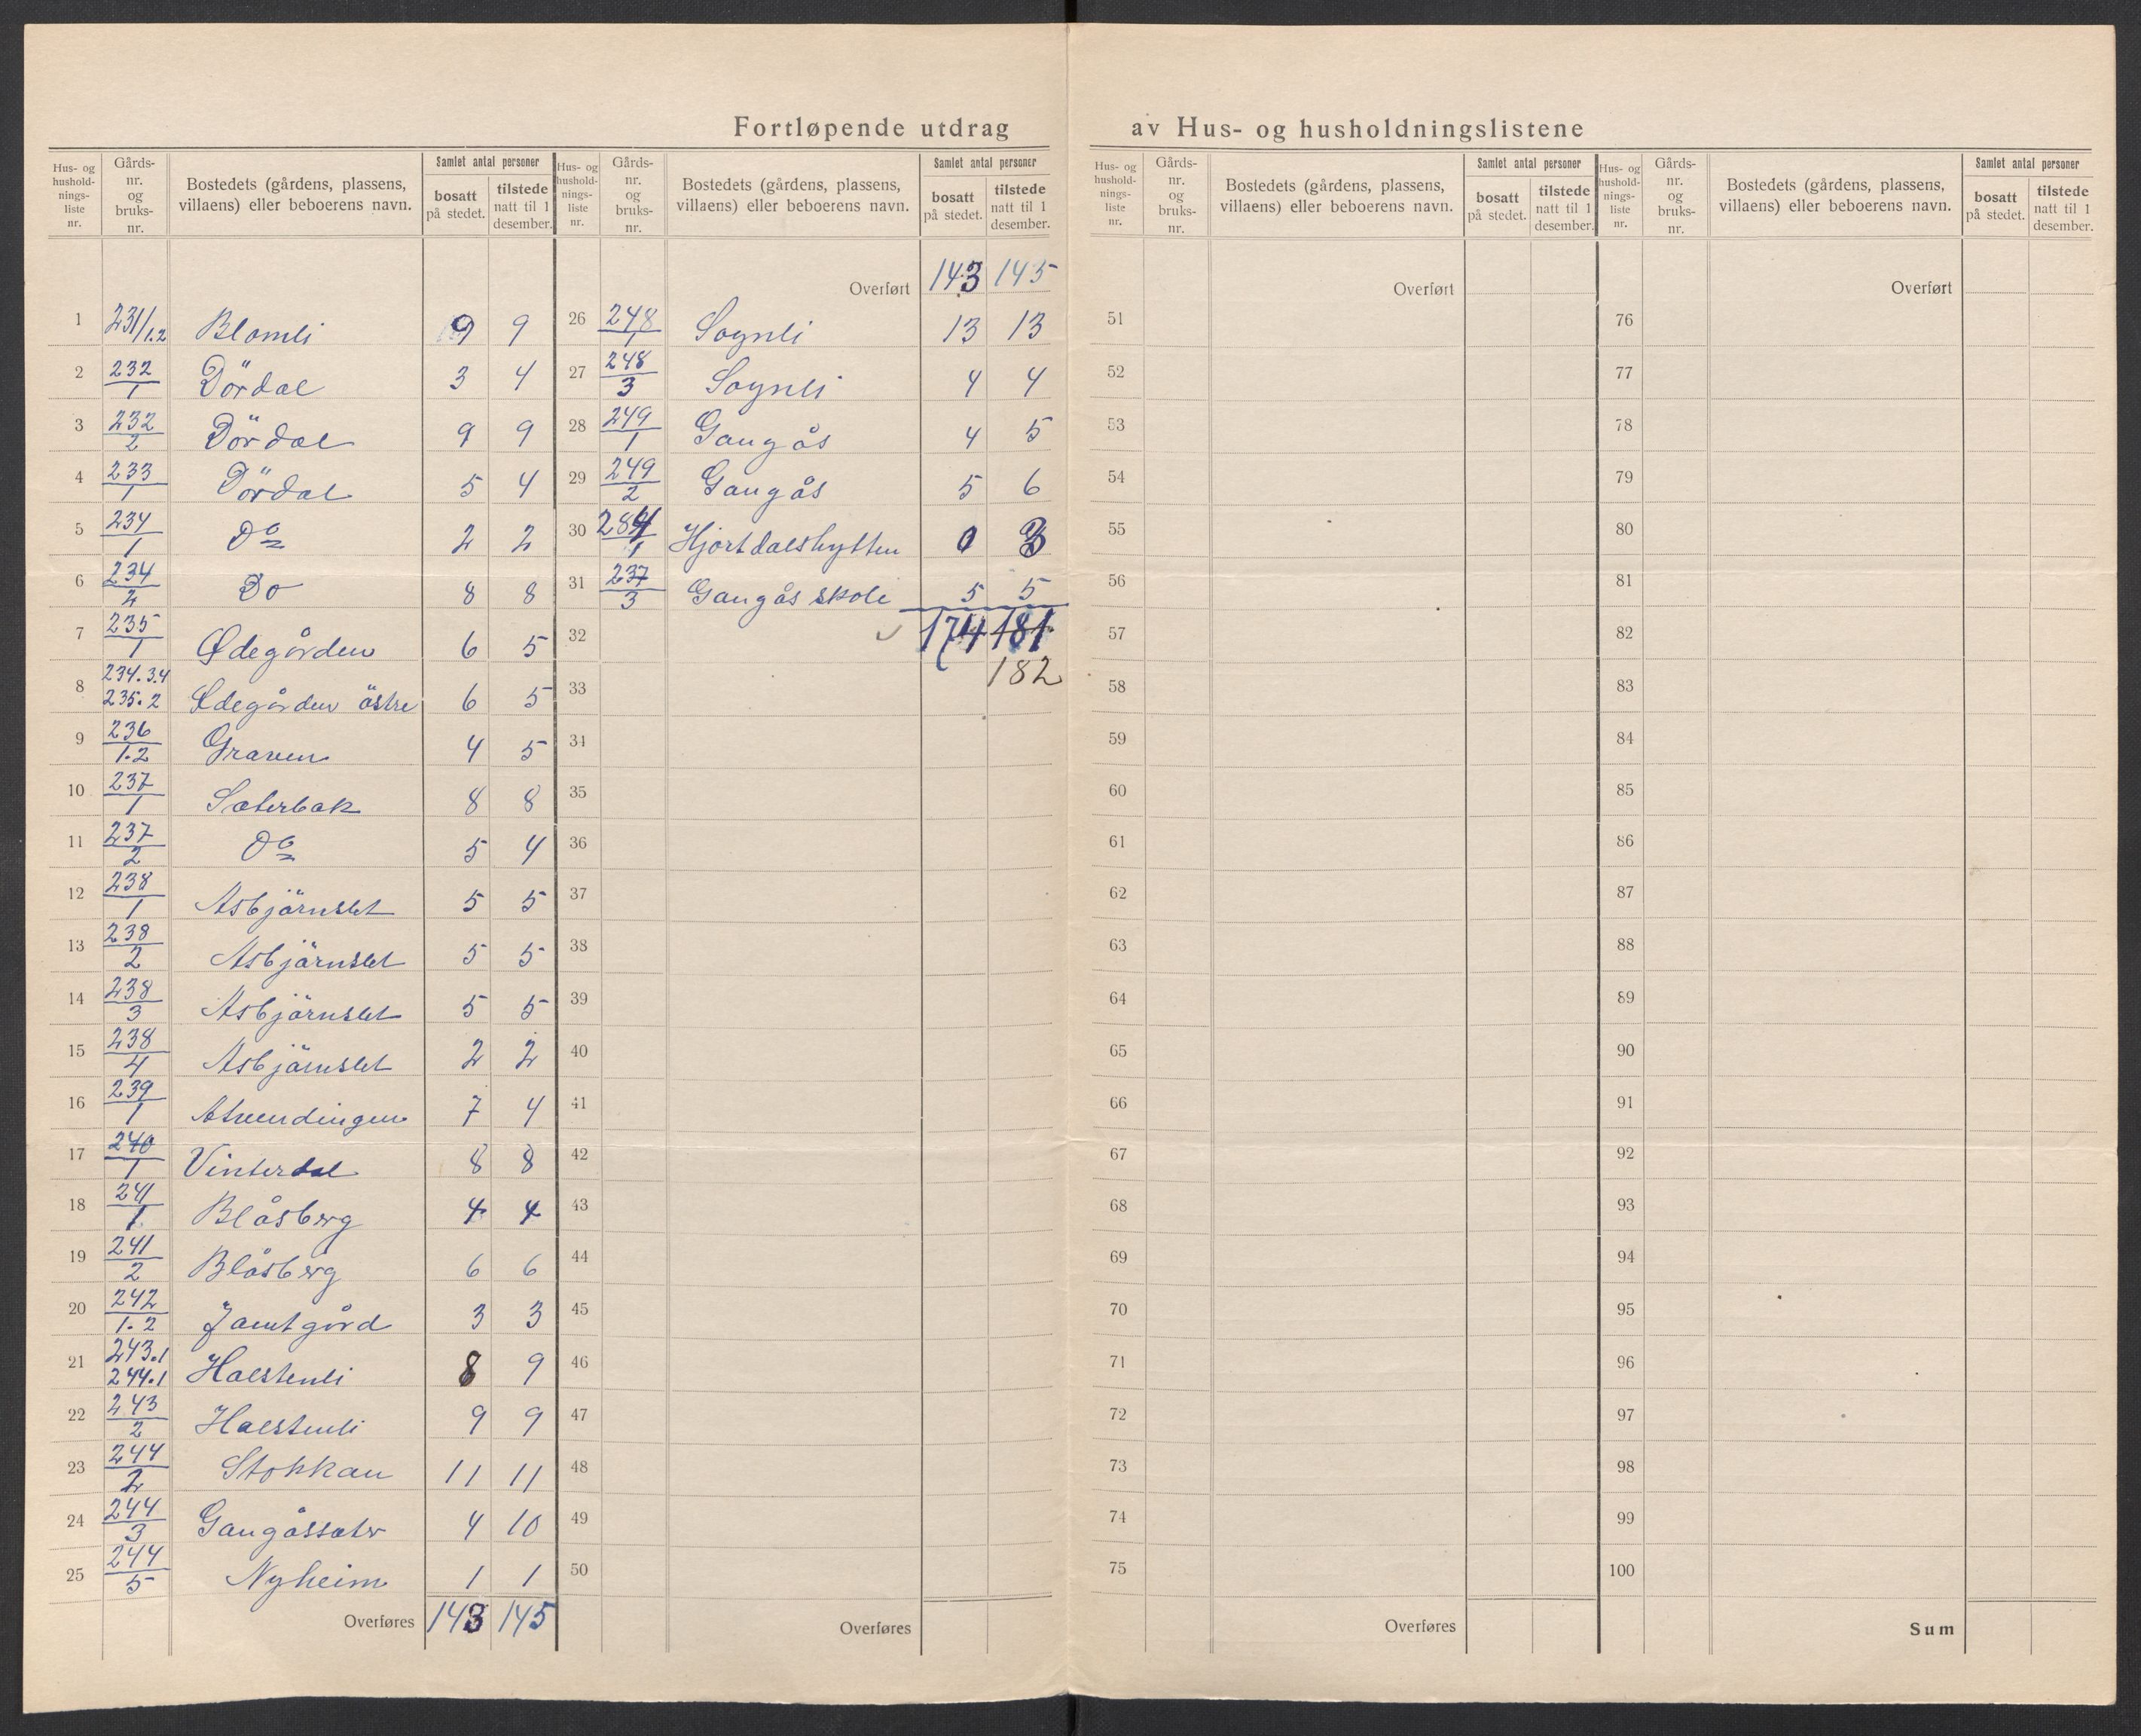 Fortløpende utdrag av Hus- og husholdningslistene
Hus- og hushold- nings- liste nr. | Gårds- nr. og bruks- nr. | Bostedets (gårdens, plassens, villaens) eller beboerens navn. | Samlet antal personer | bosatt på stedet. | tilstede natt til 1 desember.
1 231/1.2 Blomli 9 9
2 232/1 Dördal 3 4
3 232/2 Dördal 9 9
4 233/1 Dördal 5 4
5 234/1 Do 2 2
6 234/2 Do 8 8
7 235/1 Ødegården 6 5
8 234.3.4 235.2 Ødegården östre 6 5
9 236/1.2 Graven 4 5
10 237/1 Sæterbak 8 8
11 237/2 Do 5 4
12 238/1 Asbjörnslet 5 5
13 238/2 Asbjörnslet 5 5
14 238/3 Asbjörnslet 5 5
15 238/4 Asbjörnslet 2 2
16 239/1 7 4
17 240/1 Vinterdal 8 8
18 241/1 Blåsberg 4 4
19 241/2 Blåsberg 6 6
20 242/1.2 Jamtgård 3 3
21 243.1 244.1 Halstenli 8 9
22 243/2 Halstenli 9 9
23 244/2 Stokkan 11 11
24 244/3 Gangåssæter 4 10
25 244/5 Nyheim 1 1
Overføres 143 145
Hus- og hushold- nings- liste nr. | Gårds- nr. og bruks- nr. | Bostedets (gårdens, plassens, villaens) eller beboerens navn. | Samlet antal personer | bosatt på stedet. | tilstede natt til 1 desember.
Overført 143 145
26 248/1 Sognli 13 13
27 248/3 Sognli 4 4
28 249/1 Gangås 4 5
29 249/2 Gangås 5 6
30 284/1 Hjortdalshytten 0 3
31 237/3 Gangås skole 5 5
32 174 181
33 182
34
35
36
37
38
39
40
41
42
43
44
45
46
47
48
49
50
Overføres
Hus- og hushold- nings- liste nr. | Gårds- nr. og bruks- nr. | Bostedets (gårdens, plassens, villaens) eller beboerens navn. | Samlet antal personer | bosatt på stedet. | tilstede natt til 1 desember.
Overført
51
52
53
54
55
56
57
58
59
60
61
62
63
64
65
66
67
68
69
70
71
72
73
74
75
Overføres
Hus- og hushold- nings- liste nr. | Gårds- nr. og bruks- nr. | Bostedets (gårdens, plassens, villaens) eller beboerens navn. | Samlet antal personer | bosatt på stedet. | tilstede natt til 1 desember.
Overført
76
77
78
79
80
81
82
83
84
85
86
87
88
89
90
91
92
93
94
95
96
97
98
99
100
Sum